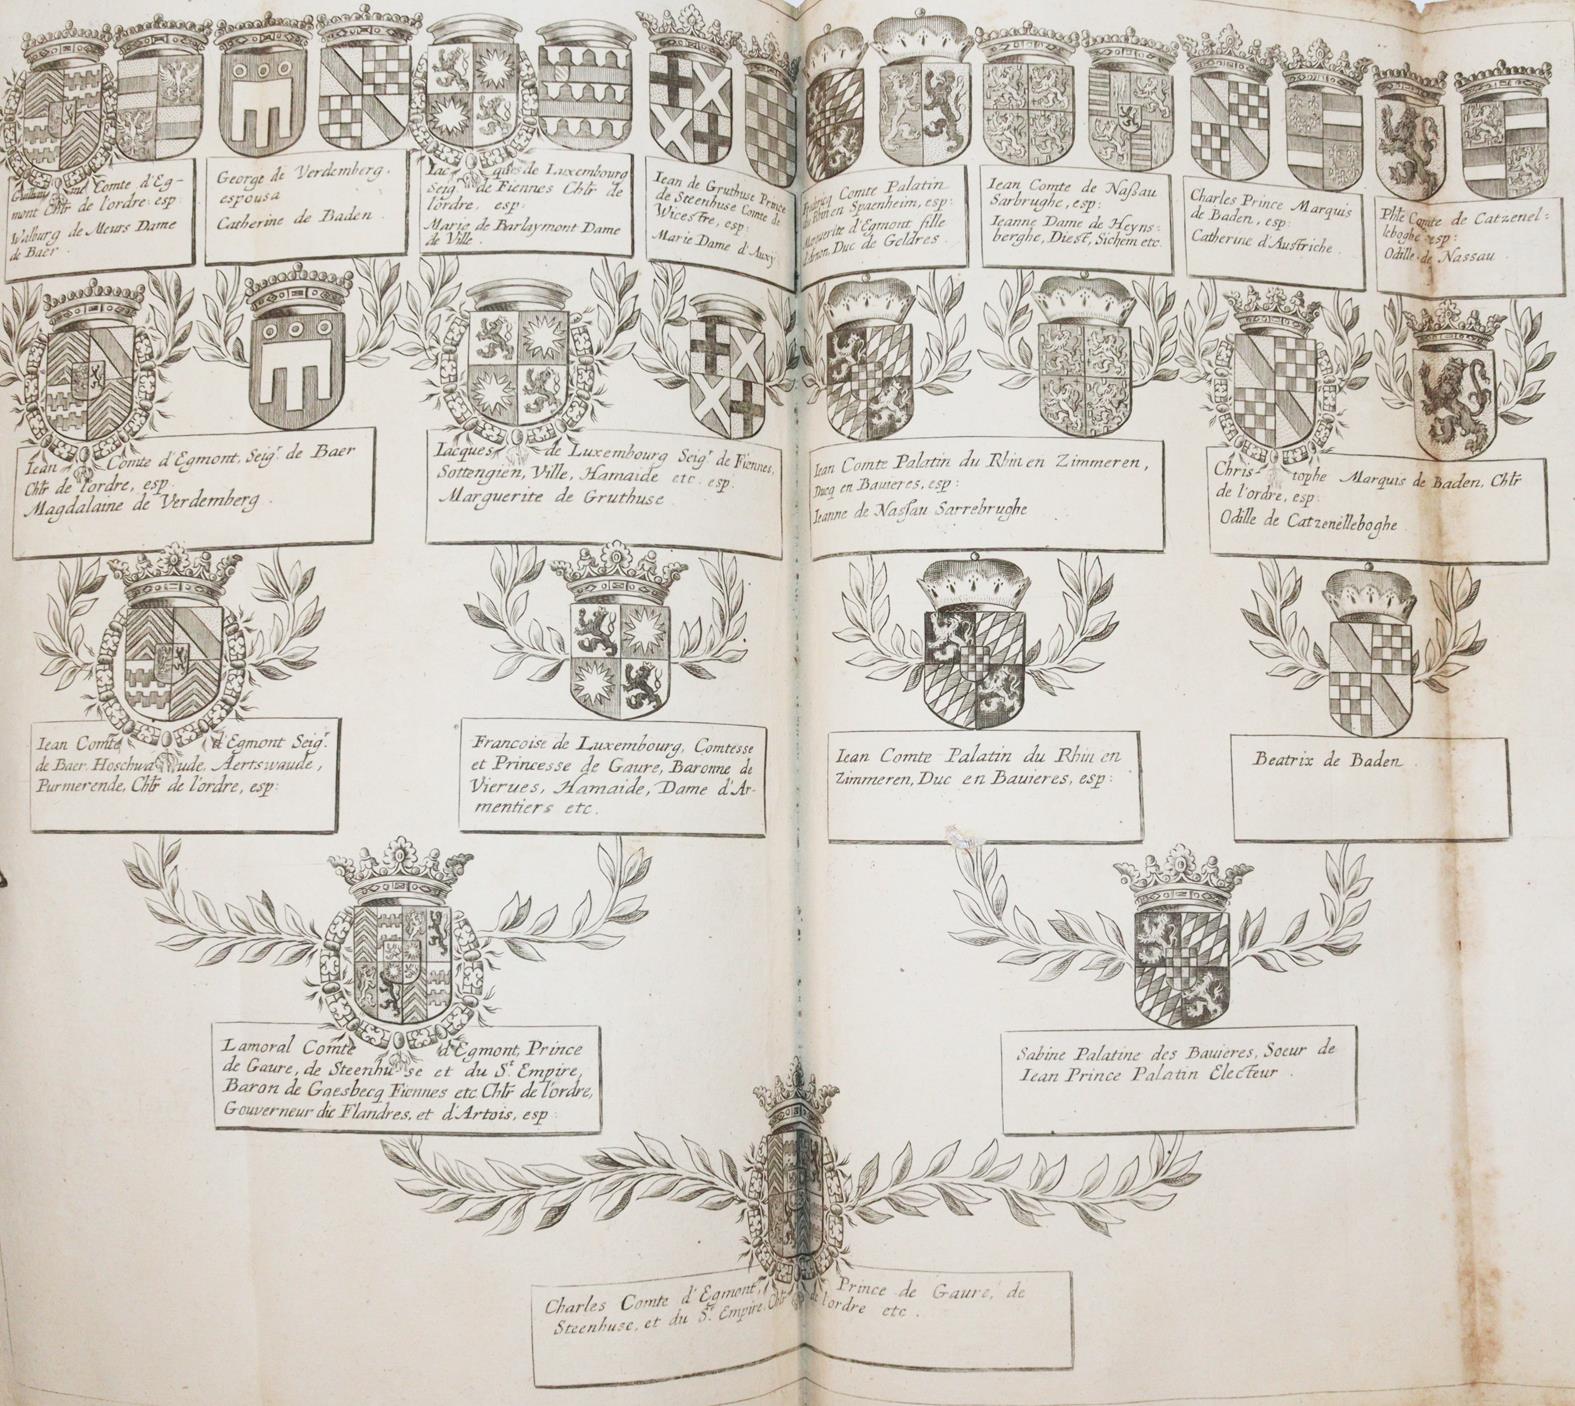 Guillaume Comte d'Eg-
mont Chlr de l'ordre esp:
Walburg de Meurs Dame
de Baer.
George de Verdemberg.
espousa
Catherine de Baden.
Iacques de Luxembourg
Seigr de Fiennes Chlr de
l'ordre, esp:
Marie de Barlaymont Dame
de Ville.
Iean de Gruthuse Prince
de Steenhuse Comte de
Wicestre, esp:
Marie Dame d'Auxÿ
Comte Palatin
du Rhin en Spaenheim, esp:
Marguerite d'Egmont fille
d'Arnon, Duc de Geldres.
Iean Comte de Naßau
Sarbrughe, esp:
Ieanne Dame de Heyns-
berghe, Diest, Sichem etc.
Charles Prince Marquis
de Baden, esp:
Catherine d'Austriche.
Phle Comte de Catzenel:
leboghe esp:
Odille de Nassau.
Iean Comte d'Egmont, Seigr de Baer
Chlr de l'ordre, esp.
Magdalaine de Verdemberg.
Iacques de Luxembourg Seigr de Fiennes,
Sottengien, Ville, Hamaide etc. esp.
Marguerite de Gruthuse
Iean Comte Palatin du Rhin en Zimmeren,
Ducq en Bauieres, esp:
Ieanne de Nassau Sarrebrughe
Chris-tophe Marquis de Baden, Chlr
de l'ordre, esp:
Odille de Catzenelleboghe.
Iean Comte d'Egmont Seigr
de Baer, Hoschwaude, Aertswaude,
Purmerende, Chlr de l'ordre, esp:
Francoise de Luxembourg, Comtesse
et Princesse de Gaure, Baronne de
Vierues, Hamaide, Dame d'Ar-
mentiers etc.
Iean Comte Palatin du Rhin en
Zimmeren, Duc en Bauieres, esp:
Beatrix de Baden.
Lamoral Comte d'Egmont, Prince
de Gaure, de Steenhuse et du St Empire,
Baron de Gaesbecq Fiennes etc. Chlr de l'ordre,
Gouverneur de Flandres, et d'Artois, esp:
Sabine Palatine des Bauieres, Soeur de
Iean Prince Palatin Electeur.
Charles Comte d'Egmont, Prince de Gaure, de
Steenhuse, et du St Empire, Chlr de l'ordre etc.